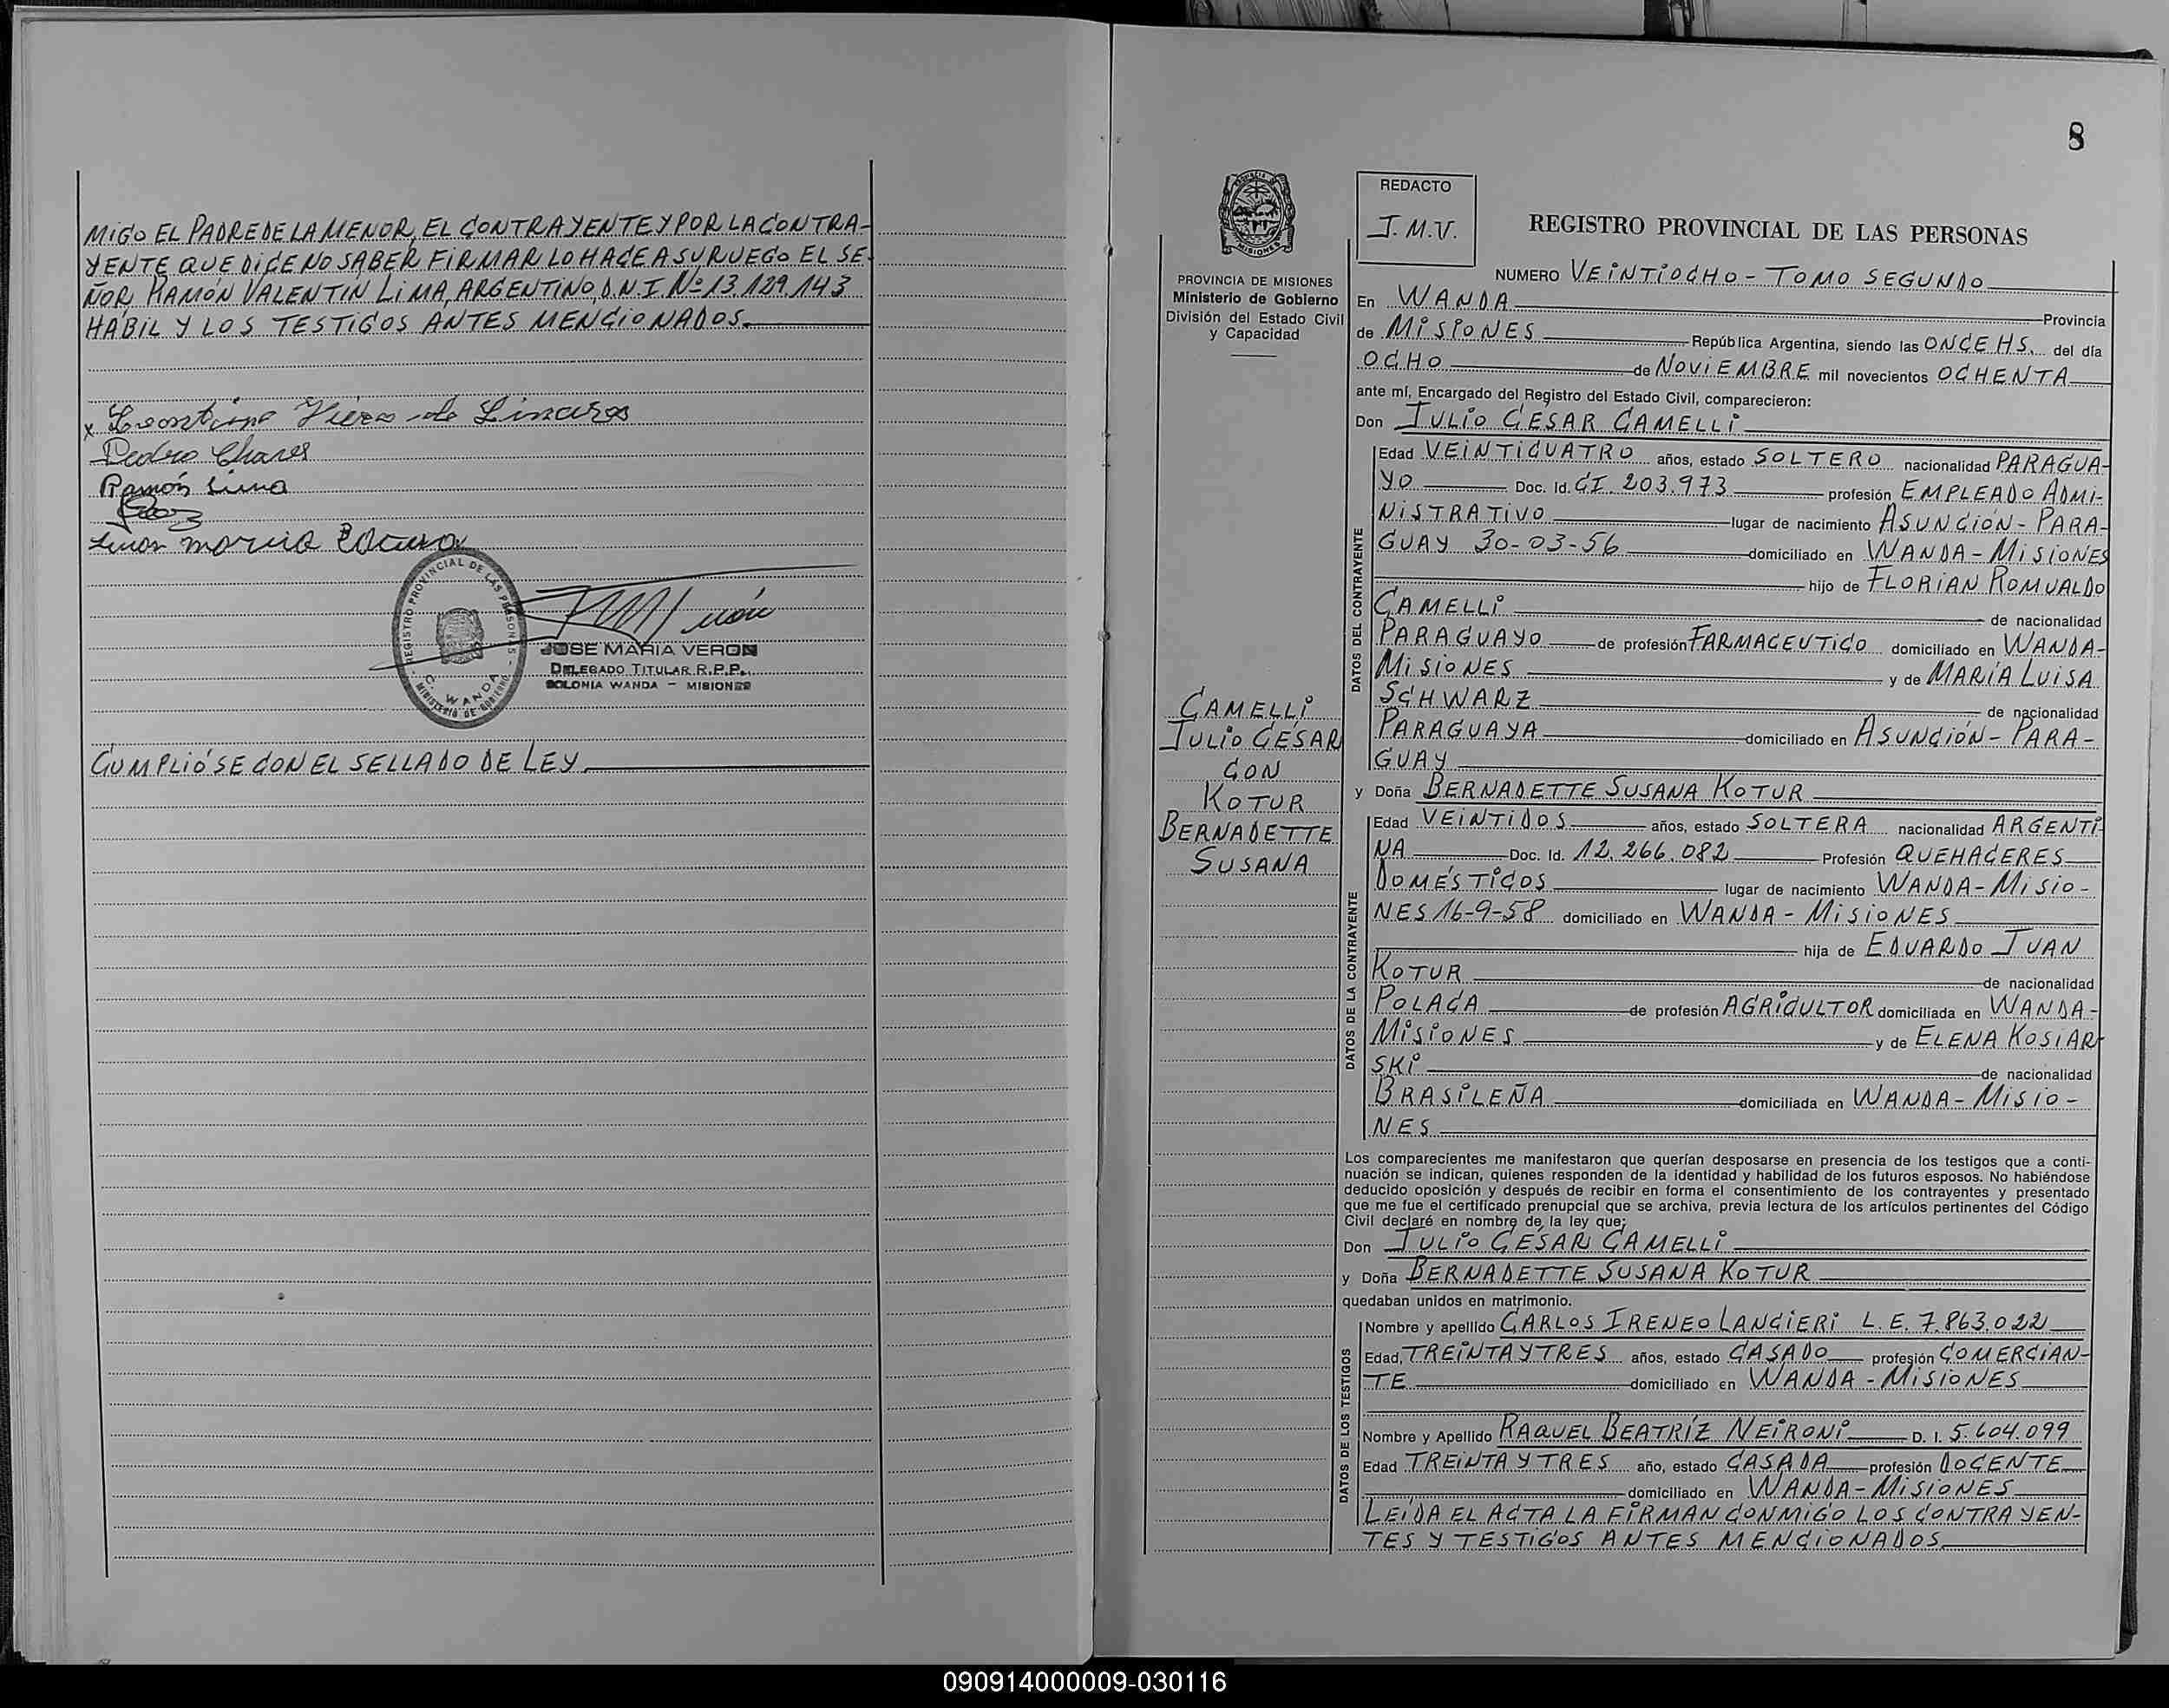 MIGO EL PADRE DE LA MENOR, EL CONTRAYENTE Y POR LA CONTRA-
YENTE QUE DICE NO SABER FIRMAR LO HACE A SU RUEGO EL SE-
ÑOR RAMÓN VALENTIN LIMA, ARGENTINO, D.N.I. Nº 13.129.143
HABIL Y LOS TESTIGOS ANTES MENCIONADOS.
x Leontina Viera de Linares
Pedro Chaves
Ramón Lima
REGISTRO PROVINCIAL DE LAS PERSONAS
C. WANDA
MINISTERIO DE GOBIERNO
JOSE MARIA VERON
DELEGADO TITULAR R.P.P.
COLONIA WANDA - MISIONES
CUMPLIÓSE CON EL SELLADO DE LEY.
8
PROVINCIA DE MISIONES
Ministerio de Gobierno
División del Estado Civil
y Capacidad
CAMELLI
JULIO CESAR
CON
KOTUR
BERNADETTE
SUSANA
REDACTO
J.M.V.
REGISTRO PROVINCIAL DE LAS PERSONAS
NUMERO VEINTIOCHO - TOMO SEGUNDO
En WANDA Provincia
de MISIONES República Argentina, siendo las ONCE HS. del día
OCHO de NOVIEMBRE mil novecientos OCHENTA
ante mí, Encargado del Registro del Estado Civil, comparecieron:
Don JULIO CESAR CAMELLI
DATOS DEL CONTRAYENTE
Edad VEINTICUATRO años, estado SOLTERO nacionalidad PARAGUA-
YO Doc. Id. CI. 203.973 profesión EMPLEADO ADMI-
NISTRATIVO lugar de nacimiento ASUNCIÓN - PARA-
GUAY 30-03-56 domiciliado en WANDA - MISIONES
hijo de FLORIAN ROMUALDO
CAMELLI de nacionalidad
PARAGUAYO de profesión FARMACEUTICO domiciliado en WANDA-
MISIONES y de MARÍA LUISA
SCHWARZ de nacionalidad
PARAGUAYA domiciliado en ASUNCIÓN - PARA-
GUAY
y Doña BERNADETTE SUSANA KOTUR
DATOS DE LA CONTRAYENTE
Edad VEINTIDOS años, estado SOLTERA nacionalidad ARGENTI-
NA Doc. Id. 12.266.082 Profesión QUEHACERES
DOMÉSTICOS lugar de nacimiento WANDA - MISIO-
NES 16-9-58 domiciliado en WANDA - MISIONES
hija de EDUARDO JUAN
KOTUR de nacionalidad
POLACA de profesión AGRICULTOR domiciliada en WANDA-
MISIONES y de ELENA KOSIAR-
SKI de nacionalidad
BRASILEÑA domiciliada en WANDA - MISIO-
NES
Los comparecientes me manifestaron que querían desposarse en presencia de los testigos que a conti-
nuación se indican, quienes responden de la identidad y habilidad de los futuros esposos. No habiéndose
deducido oposición y después de recibir en forma el consentimiento de los contrayentes y presentado
que me fue el certificado prenupcial que se archiva, previa lectura de los artículos pertinentes del Código
Civil declaré en nombre de la ley que;
Don JULIO CESAR CAMELLI
y Doña BERNADETTE SUSANA KOTUR
quedaban unidos en matrimonio.
DATOS DE LOS TESTIGOS
Nombre y apellido CARLOS IRENEO LANCIERI L.E. 7.863.022
Edad, TREINTA Y TRES años, estado CASADO profesión COMERCIAN-
TE domiciliado en WANDA - MISIONES
Nombre y Apellido RAQUEL BEATRÍZ NEIRONI D. I. 5.604.099
Edad TREINTA Y TRES año, estado CASADA profesión DOCENTE
domiciliado en WANDA - MISIONES
LEÍDA EL ACTA LA FIRMAN CONMIGO LOS CONTRAYEN-
TES Y TESTIGOS ANTES MENCIONADOS
090914000009-030116